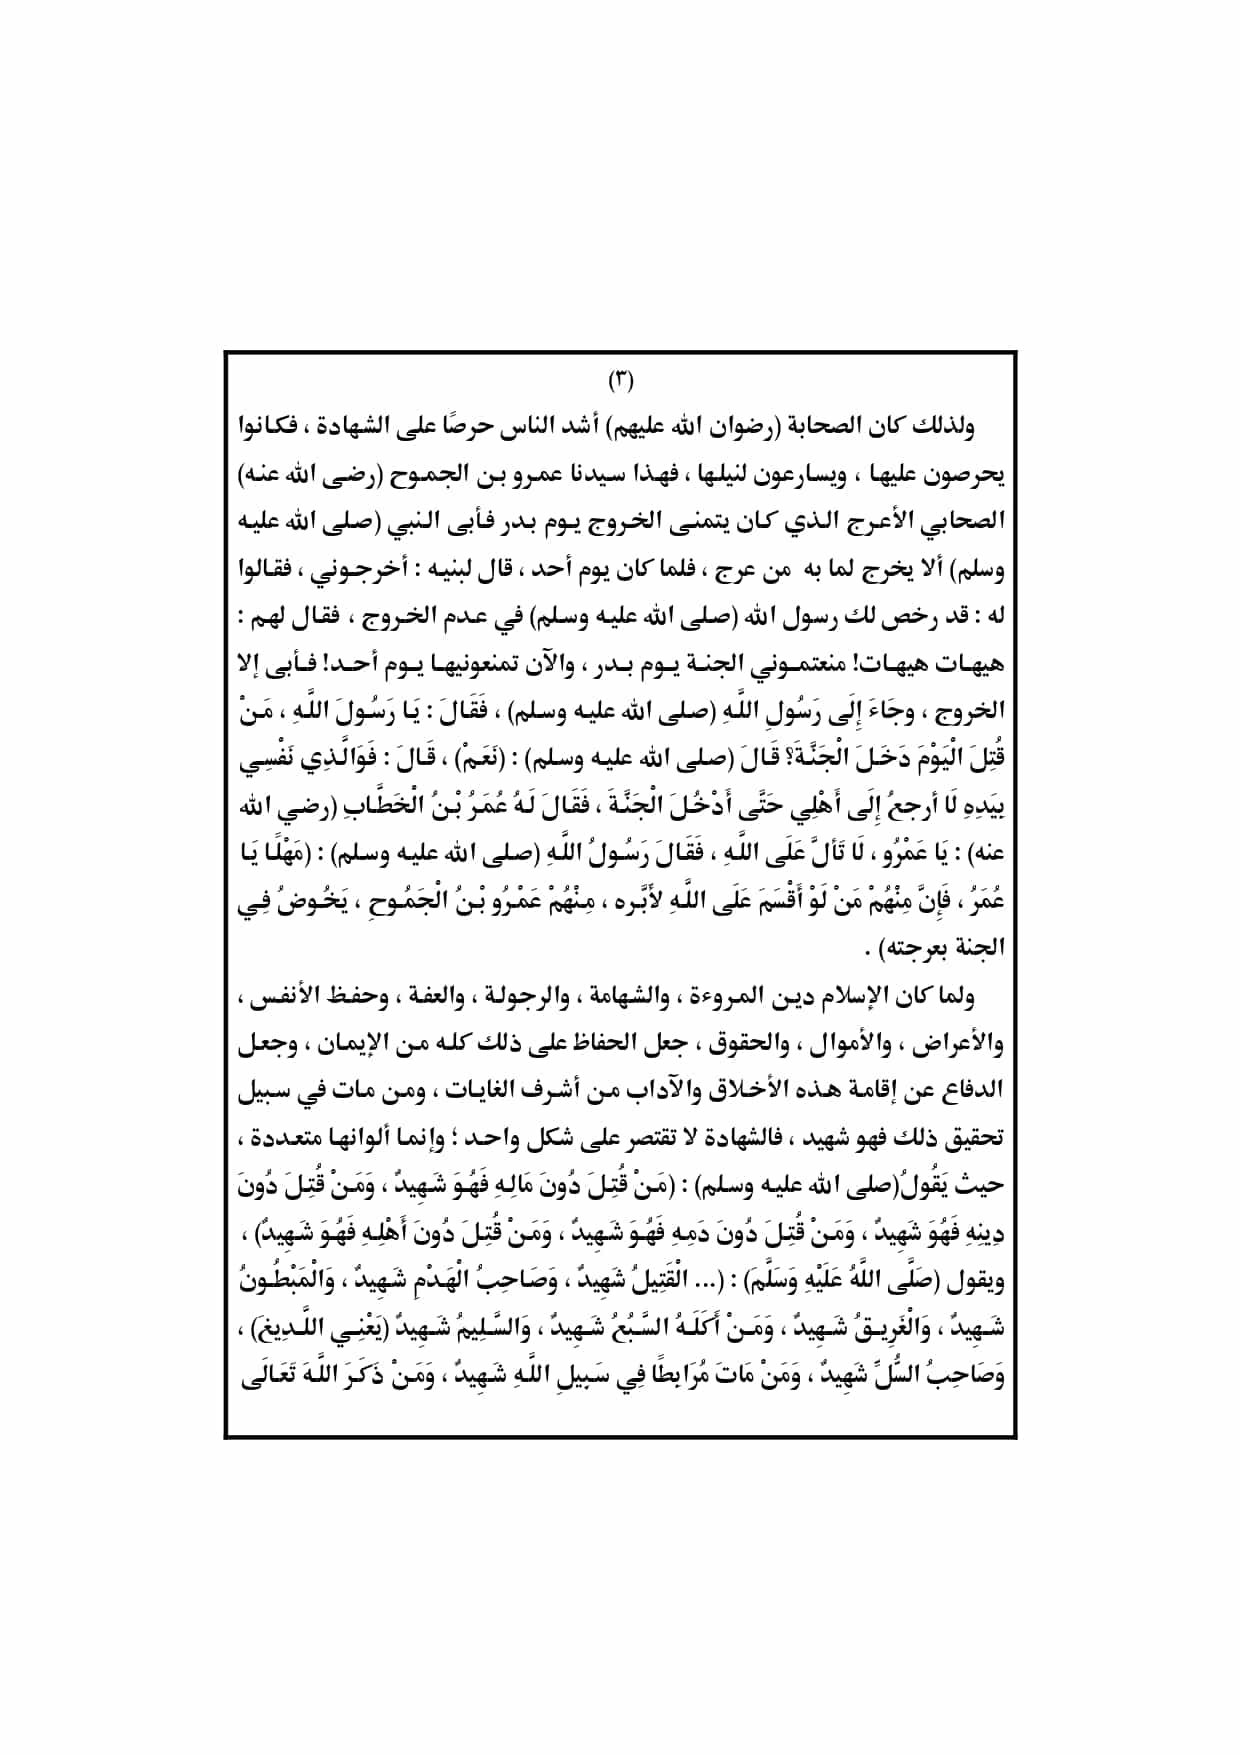 (٣)
ولذلك كان الصحابة (رضوان الله عليهم) أشد الناس حرصًا على الشهادة ، فكانوا
يحرصون عليها ، ويسارعون لنيلها ، فهذا سيدنا عمرو بن الجموح (رضى الله عنه)
الصحابي الأعرج الذي كان يتمنى الخروج يوم بدر فأبى النبي (صلى الله عليه
وسلم) ألا يخرج لما به من عرج ، فلما كان يوم أحد ، قال لبنيه : أخرجوني ، فقالوا
له : قد رخص لك رسول الله (صلى الله عليه وسلم) في عدم الخروج ، فقال لهم :
هيهات هيهات! منعتموني الجنة يوم بدر ، والآن تمنعونيها يوم أحد! فأبى إلا
الخروج ، وجَاءَ إِلَى رَسُولِ اللَّهِ (صلى الله عليه وسلم) ، فَقَالَ : يَا رَسُولَ اللَّهِ ، مَنْ
قُتِلَ الْيَوْمَ دَخَلَ الْجَنَّةَ؟ قَالَ (صلى الله عليه وسلم) : (نَعَمْ) ، قَالَ : فَوَالَّذِي نَفْسِي
بِيَدِهِ لَا أرجعُ إِلَى أَهْلِي حَتَّى أَدْخُلَ الْجَنَّةَ ، فَقَالَ لَهُ عُمَرُ بْنُ الْخَطَّابِ (رضي الله
عنه) : يَا عَمْرُو ، لَا تَألَّ عَلَى اللَّهِ ، فَقَالَ رَسُولُ اللَّهِ (صلى الله عليه وسلم) : (مَهْلًا يَا
عُمَرُ ، فَإِنَّ مِنْهُمْ مَنْ لَوْ أَقْسَمَ عَلَى اللَّهِ لأَبَّره ، مِنْهُمْ عَمْرُو بْنُ الْجَمُوحِ ، يَخُوضُ فِي
الجنة بعرجته) .
ولما كان الإسلام دين المروءة ، والشهامة ، والرجولة ، والعفة ، وحفظ الأنفس ،
والأعراض ، والأموال ، والحقوق ، جعل الحفاظ على ذلك كله من الإيمان ، وجعل
الدفاع عن إقامة هذه الأخلاق والآداب من أشرف الغايات ، ومن مات في سبيل
تحقيق ذلك فهو شهيد ، فالشهادة لا تقتصر على شكل واحد ؛ وإنما ألوانها متعددة ،
حيث يَقُولُ(صلى الله عليه وسلم) : (مَنْ قُتِلَ دُونَ مَالِهِ فَهُوَ شَهِيدٌ ، وَمَنْ قُتِلَ دُونَ
دِينِهِ فَهُوَ شَهِيدٌ ، وَمَنْ قُتِلَ دُونَ دَمِهِ فَهُوَ شَهِيدٌ ، وَمَنْ قُتِلَ دُونَ أَهْلِهِ فَهُوَ شَهِيدٌ) ،
ويقول (صَلَّى اللَّهُ عَلَيْهِ وَسَلَّمَ) : (... الْقَتِيلُ شَهِيدٌ ، وَصَاحِبُ الْهَدْمِ شَهِيدٌ ، وَالْمَبْطُونُ
شَهِيدٌ ، وَالْغَرِيقُ شَهِيدٌ ، وَمَنْ أَكَلَهُ السَّبُعُ شَهِيدٌ ، وَالسَّلِيمُ شَهِيدٌ (يَعْنِي اللَّدِيغَ) ،
وَصَاحِبُ السُّلِّ شَهِيدٌ ، وَمَنْ مَاتَ مُرَابِطًا فِي سَبِيلِ اللَّهِ شَهِيدٌ ، وَمَنْ ذَكَرَ اللَّهَ تَعَالَى